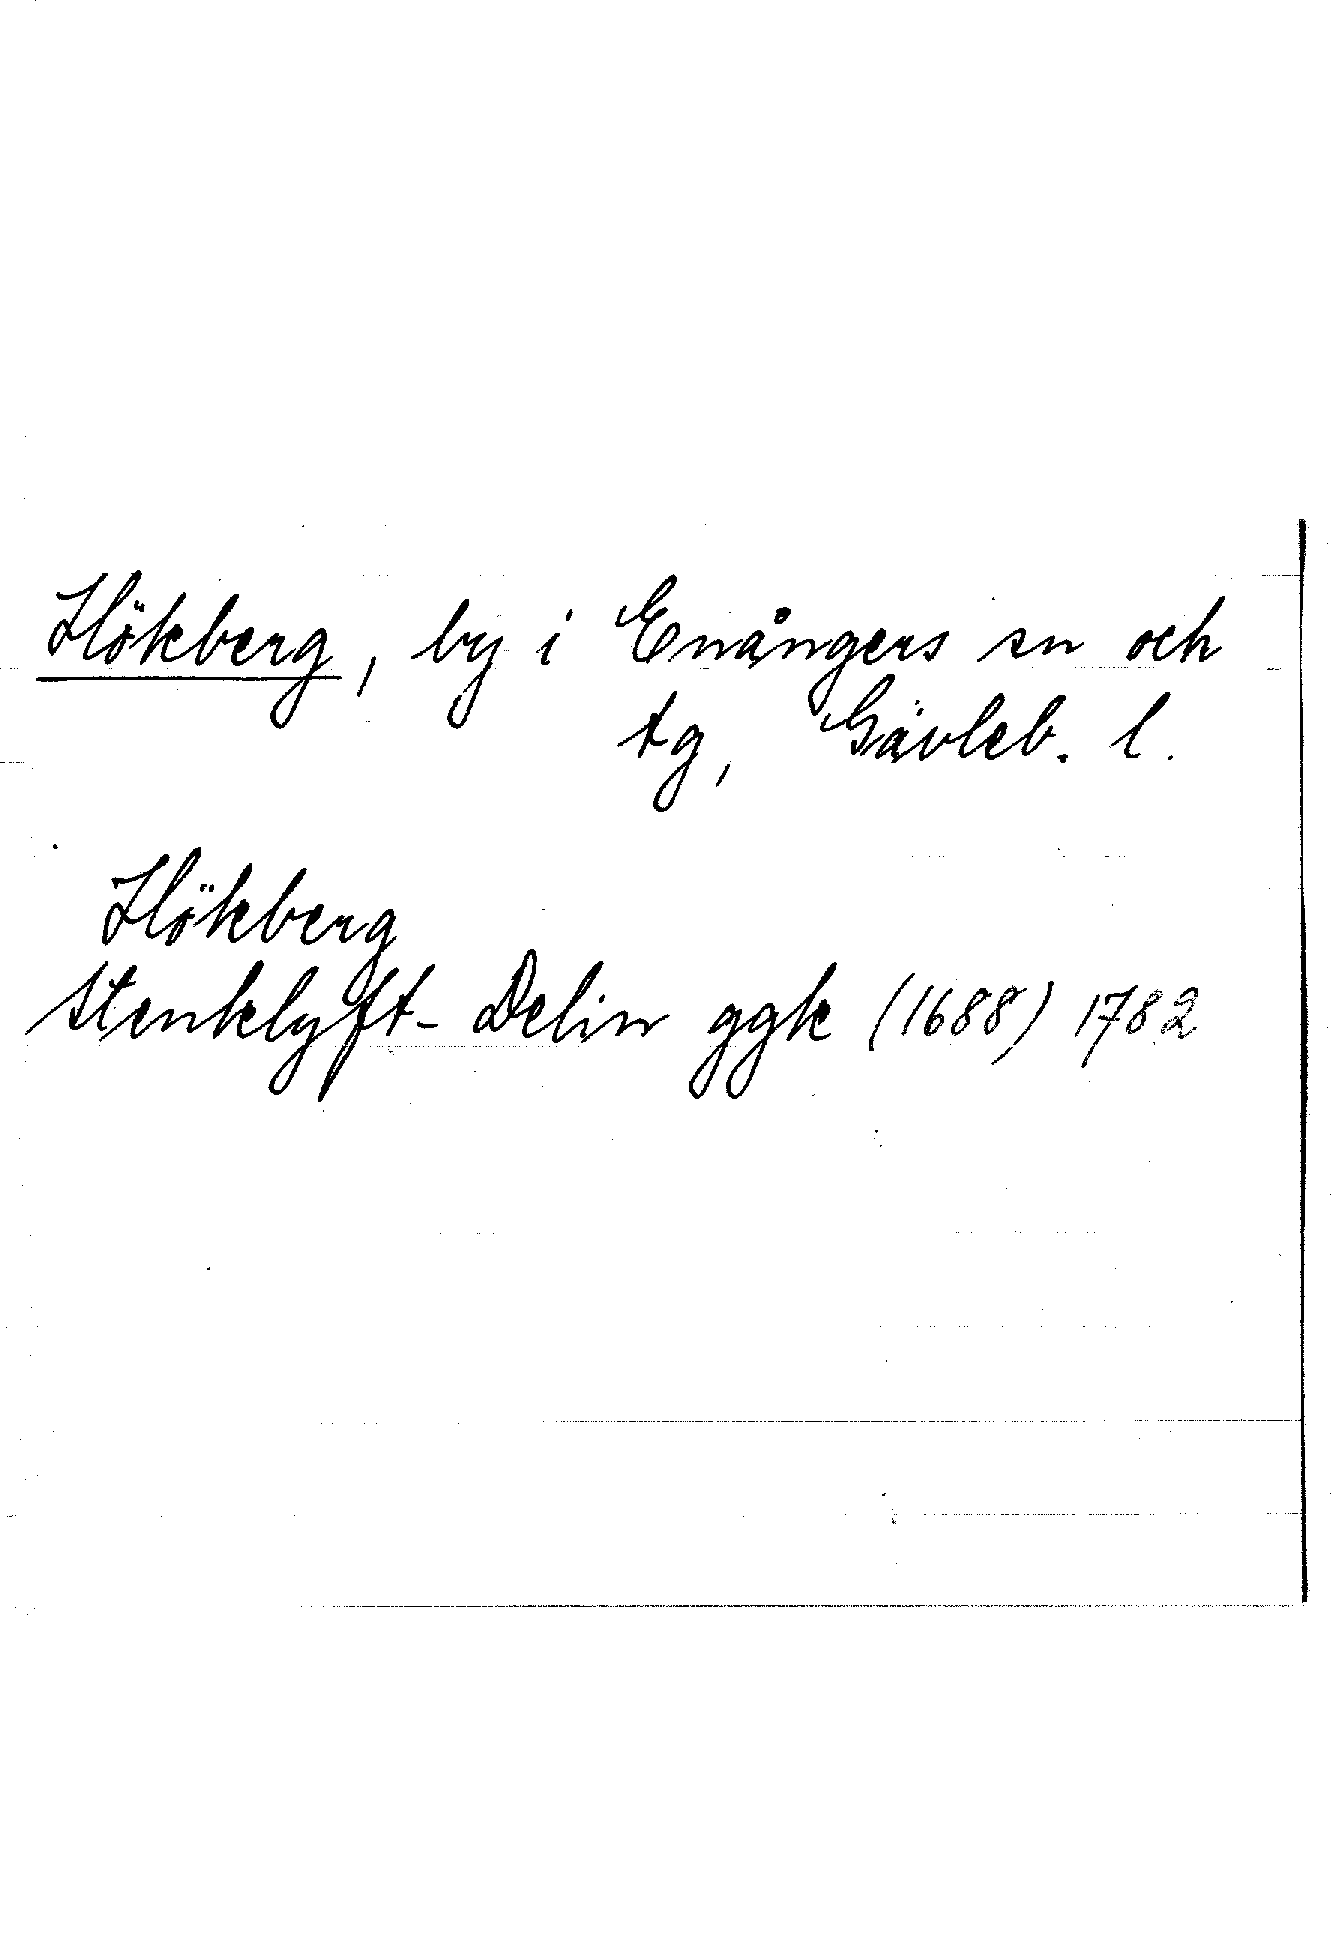 Hökberg, by i Enångers sn och
tg, Gävleb. l.
Hökberg
Stenklyft- Delin ggk (1688) 1782